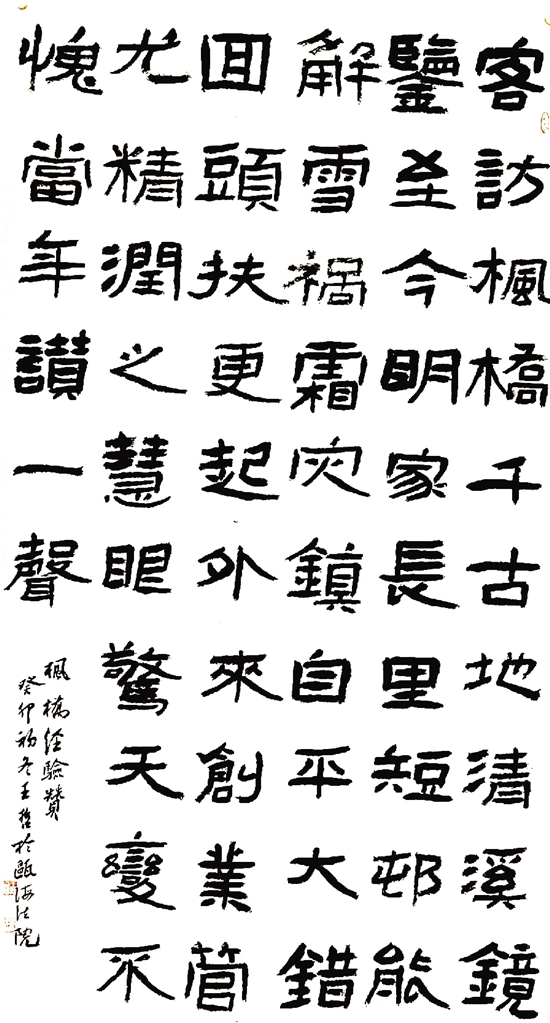 客訪楓橋千古地清溪鏡
鑒至今明家長里短邨能
解雪祸霜灾鎮自平大錯
回頭扶更起外來創業管
尤精潤之慧眼驚天變不
愧當年讚一聲
楓橋经驗贊
癸卯初冬王哲於甌海法院